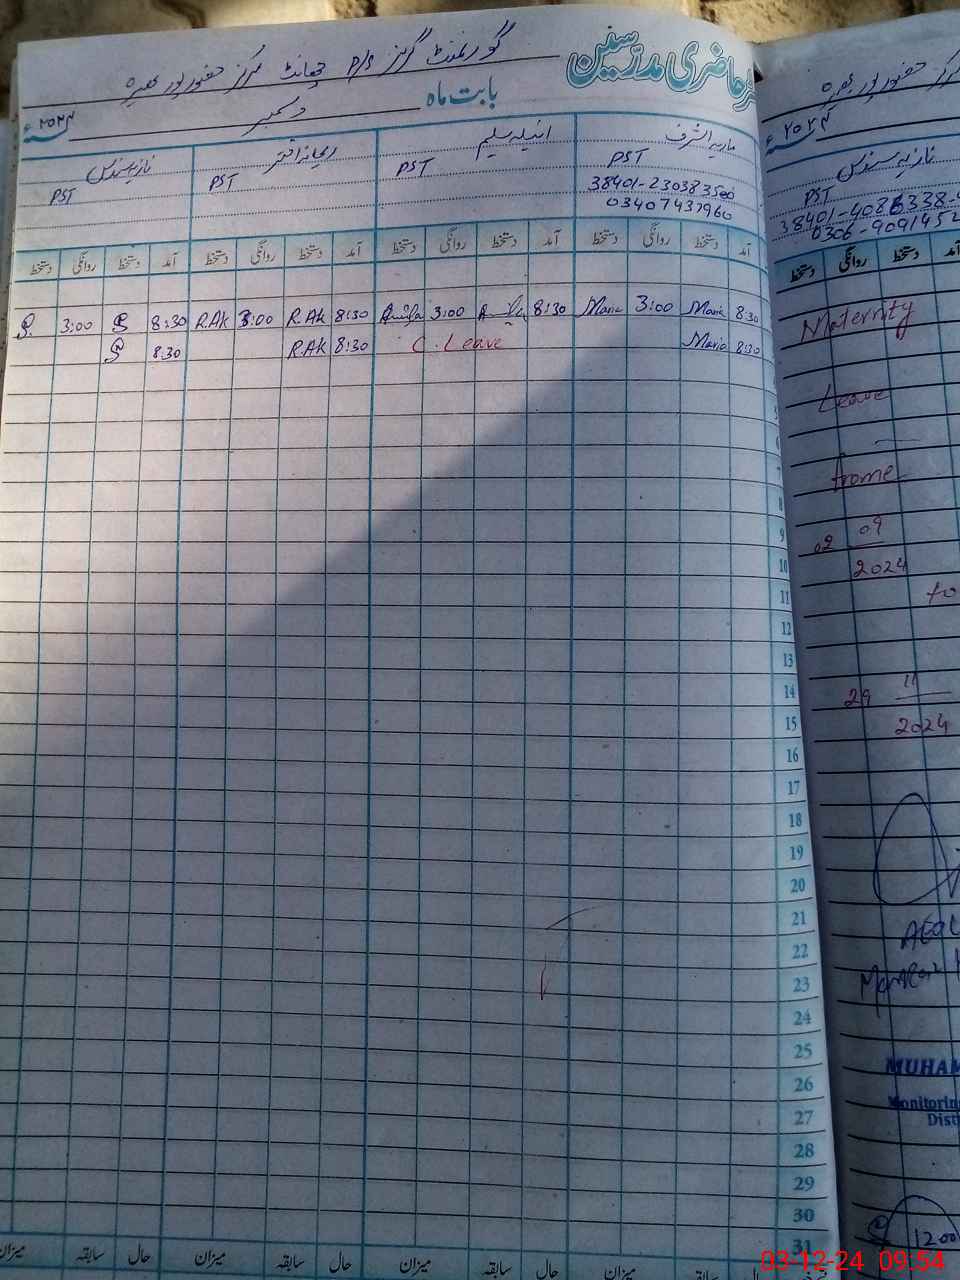 رجسٹر حاضری مدرسین
گورنمنٹ گرلز P/S چھانٹ مرکز حضور پور بھیرہ
بابت ماہ دسمبر ۲۰۲۴ء
ماریہ اشرف انیلہ سلیم ریحانہ اختر نازیہ سندس
PST PST PST PST
38401-2303835-0
03407437960
آمد دستخط روانگی دستخط آمد دستخط روانگی دستخط آمد دستخط روانگی دستخط آمد دستخط روانگی دستخط
S. 3:00 S 8:30 R.AK 3:00 R.AK 8:30 Anila 3:00 Anila 8:30 Maria 3:00 Maria 8:30
S 8:30 R.AK 8:30 C. Leave Maria 8:30
7
8
9
10
11
12
13
14
15
16
17
18
19
20
21
22
23
24
25
26
27
28
29
30
31
حال سابقہ میزان حال سابقہ میزان حال سابقہ میزان حال سابقہ میزان
مرکز حضور پور بھیرہ
۲۰۲۴ء
نازیہ سندس
PST
38401-4086338-
0306-9091452
آمد دستخط روانگی دستخط
Maternity
Leave
frome
02 09
2024
to
29 11
2024
MUHAM
Monitorin
Dist
1200
03-12-24 09:54